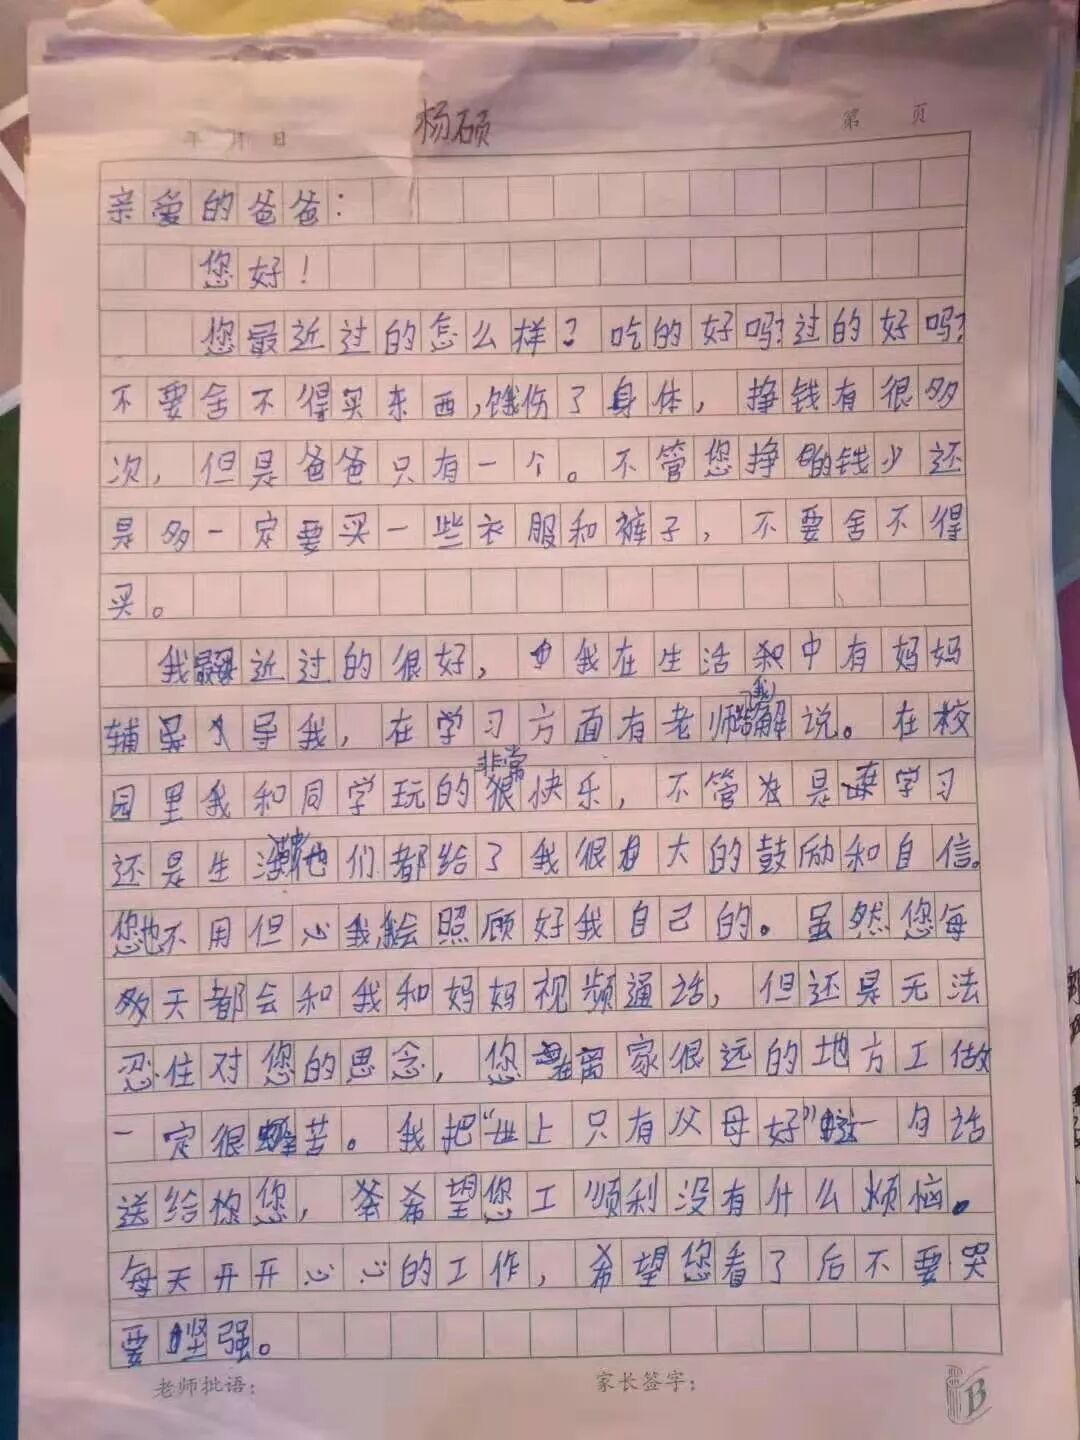 年 月 日 杨硕 第 页
亲爱的爸爸：
您好！
您最近过的怎么样？吃的好吗？过的好吗？
不要舍不得买东西，饿伤了身体，挣钱有很多
次，但是爸爸只有一个。不管您挣的钱少还
是多一定要买一些衣服和裤子，不要舍不得
买。
我最近过的很好，我在生活中有妈妈
辅导我，在学习方面有老师给我解说。在校
园里我和同学玩的非常快乐，不管是学习
还是生活中他们都给了我很大的鼓励和自信。
您也不用但心我，我会照顾好我自己的。虽然您每
天都会和我和妈妈视频通话，但还是无法
忍住对您的思念，您在离家很远的地方工做
一定很辛苦。我把“世上只有父母好”这一句话
送给您，希望您工顺利没有什么烦恼。
每天开开心心的工作，希望您看了后不要哭
要坚强。
老师批语： 家长签字：
B